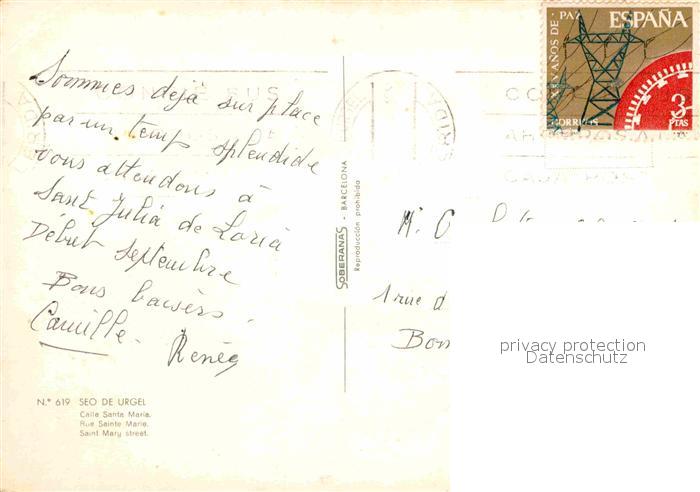 Sommes déjà sur place
par un temp splendide
vous attendons à
Sant Julià de Loria
Début septembre
Bons baisers.
Camille - Renée
N.° 619 SEO DE URGEL
Calle Santa María.
Rue Sainte Marie.
Saint Mary street.
SOBERANAS - BARCELONA
Reproducción prohibida
XXV AÑOS DE PAZ
ESPAÑA
CORREOS
3
PTAS
M.
1 rue d
privacy protection
Datenschutz